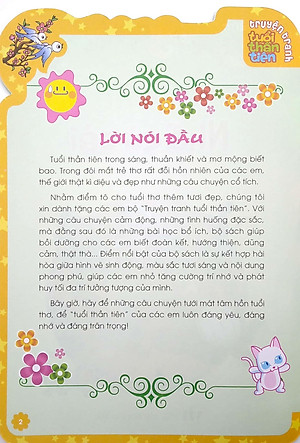 truyện tranh
tuổi
thần
tiên
LỜI NÓI ĐẦU
Tuổi thần tiên trong sáng, thuần khiết và mơ mộng biết
bao. Trong đôi mắt trẻ thơ rất đỗi hồn nhiên của các em,
thế giới thật kì diệu và đẹp như những câu chuyện cổ tích.
Nhằm điểm tô cho tuổi thơ thêm tươi đẹp, chúng tôi
xin dành tặng các em bộ "Truyện tranh tuổi thần tiên". Với
những câu chuyện cảm động, những tình huống đặc sắc,
mà đằng sau đó là những bài học bổ ích, bộ sách giúp
bồi dưỡng cho các em biết đoàn kết, hướng thiện, dũng
cảm, thật thà... Điểm nổi bật của bộ sách là sự kết hợp hài
hòa giữa hình vẽ sinh động, màu sắc tươi sáng và nội dung
phong phú, giúp các em nhỏ tăng cường trí nhớ và phát
huy tối đa trí tưởng tượng của mình.
Bây giờ, hãy để những câu chuyện tưới mát tâm hồn tuổi
thơ, để "tuổi thần tiên" của các em luôn đáng yêu, đáng
nhớ và đáng trân trọng!
2